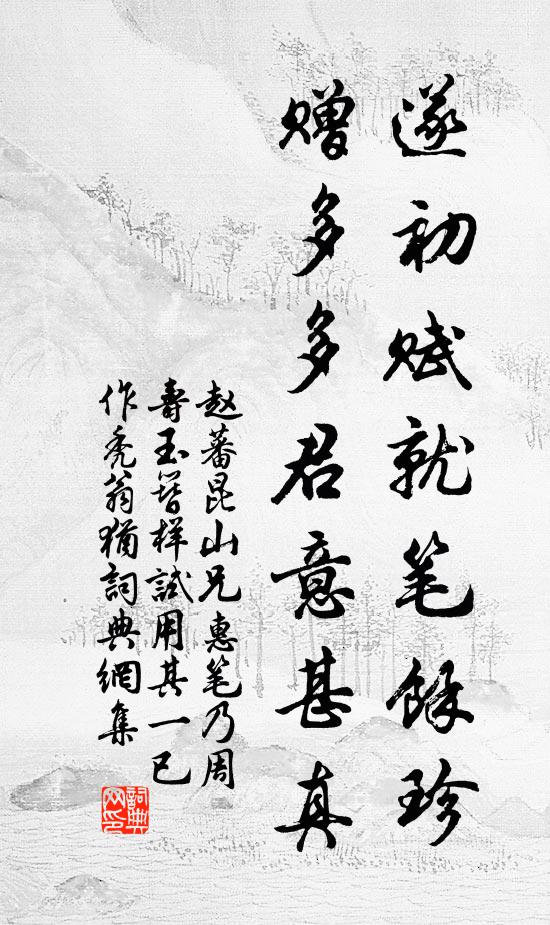 遂初赋就笔餘珍
赠多多君意甚真
赵蕃昆山兄惠笔乃周
壽玉簪样試用其一已
作秃翁猶詞典網集
詞典网印